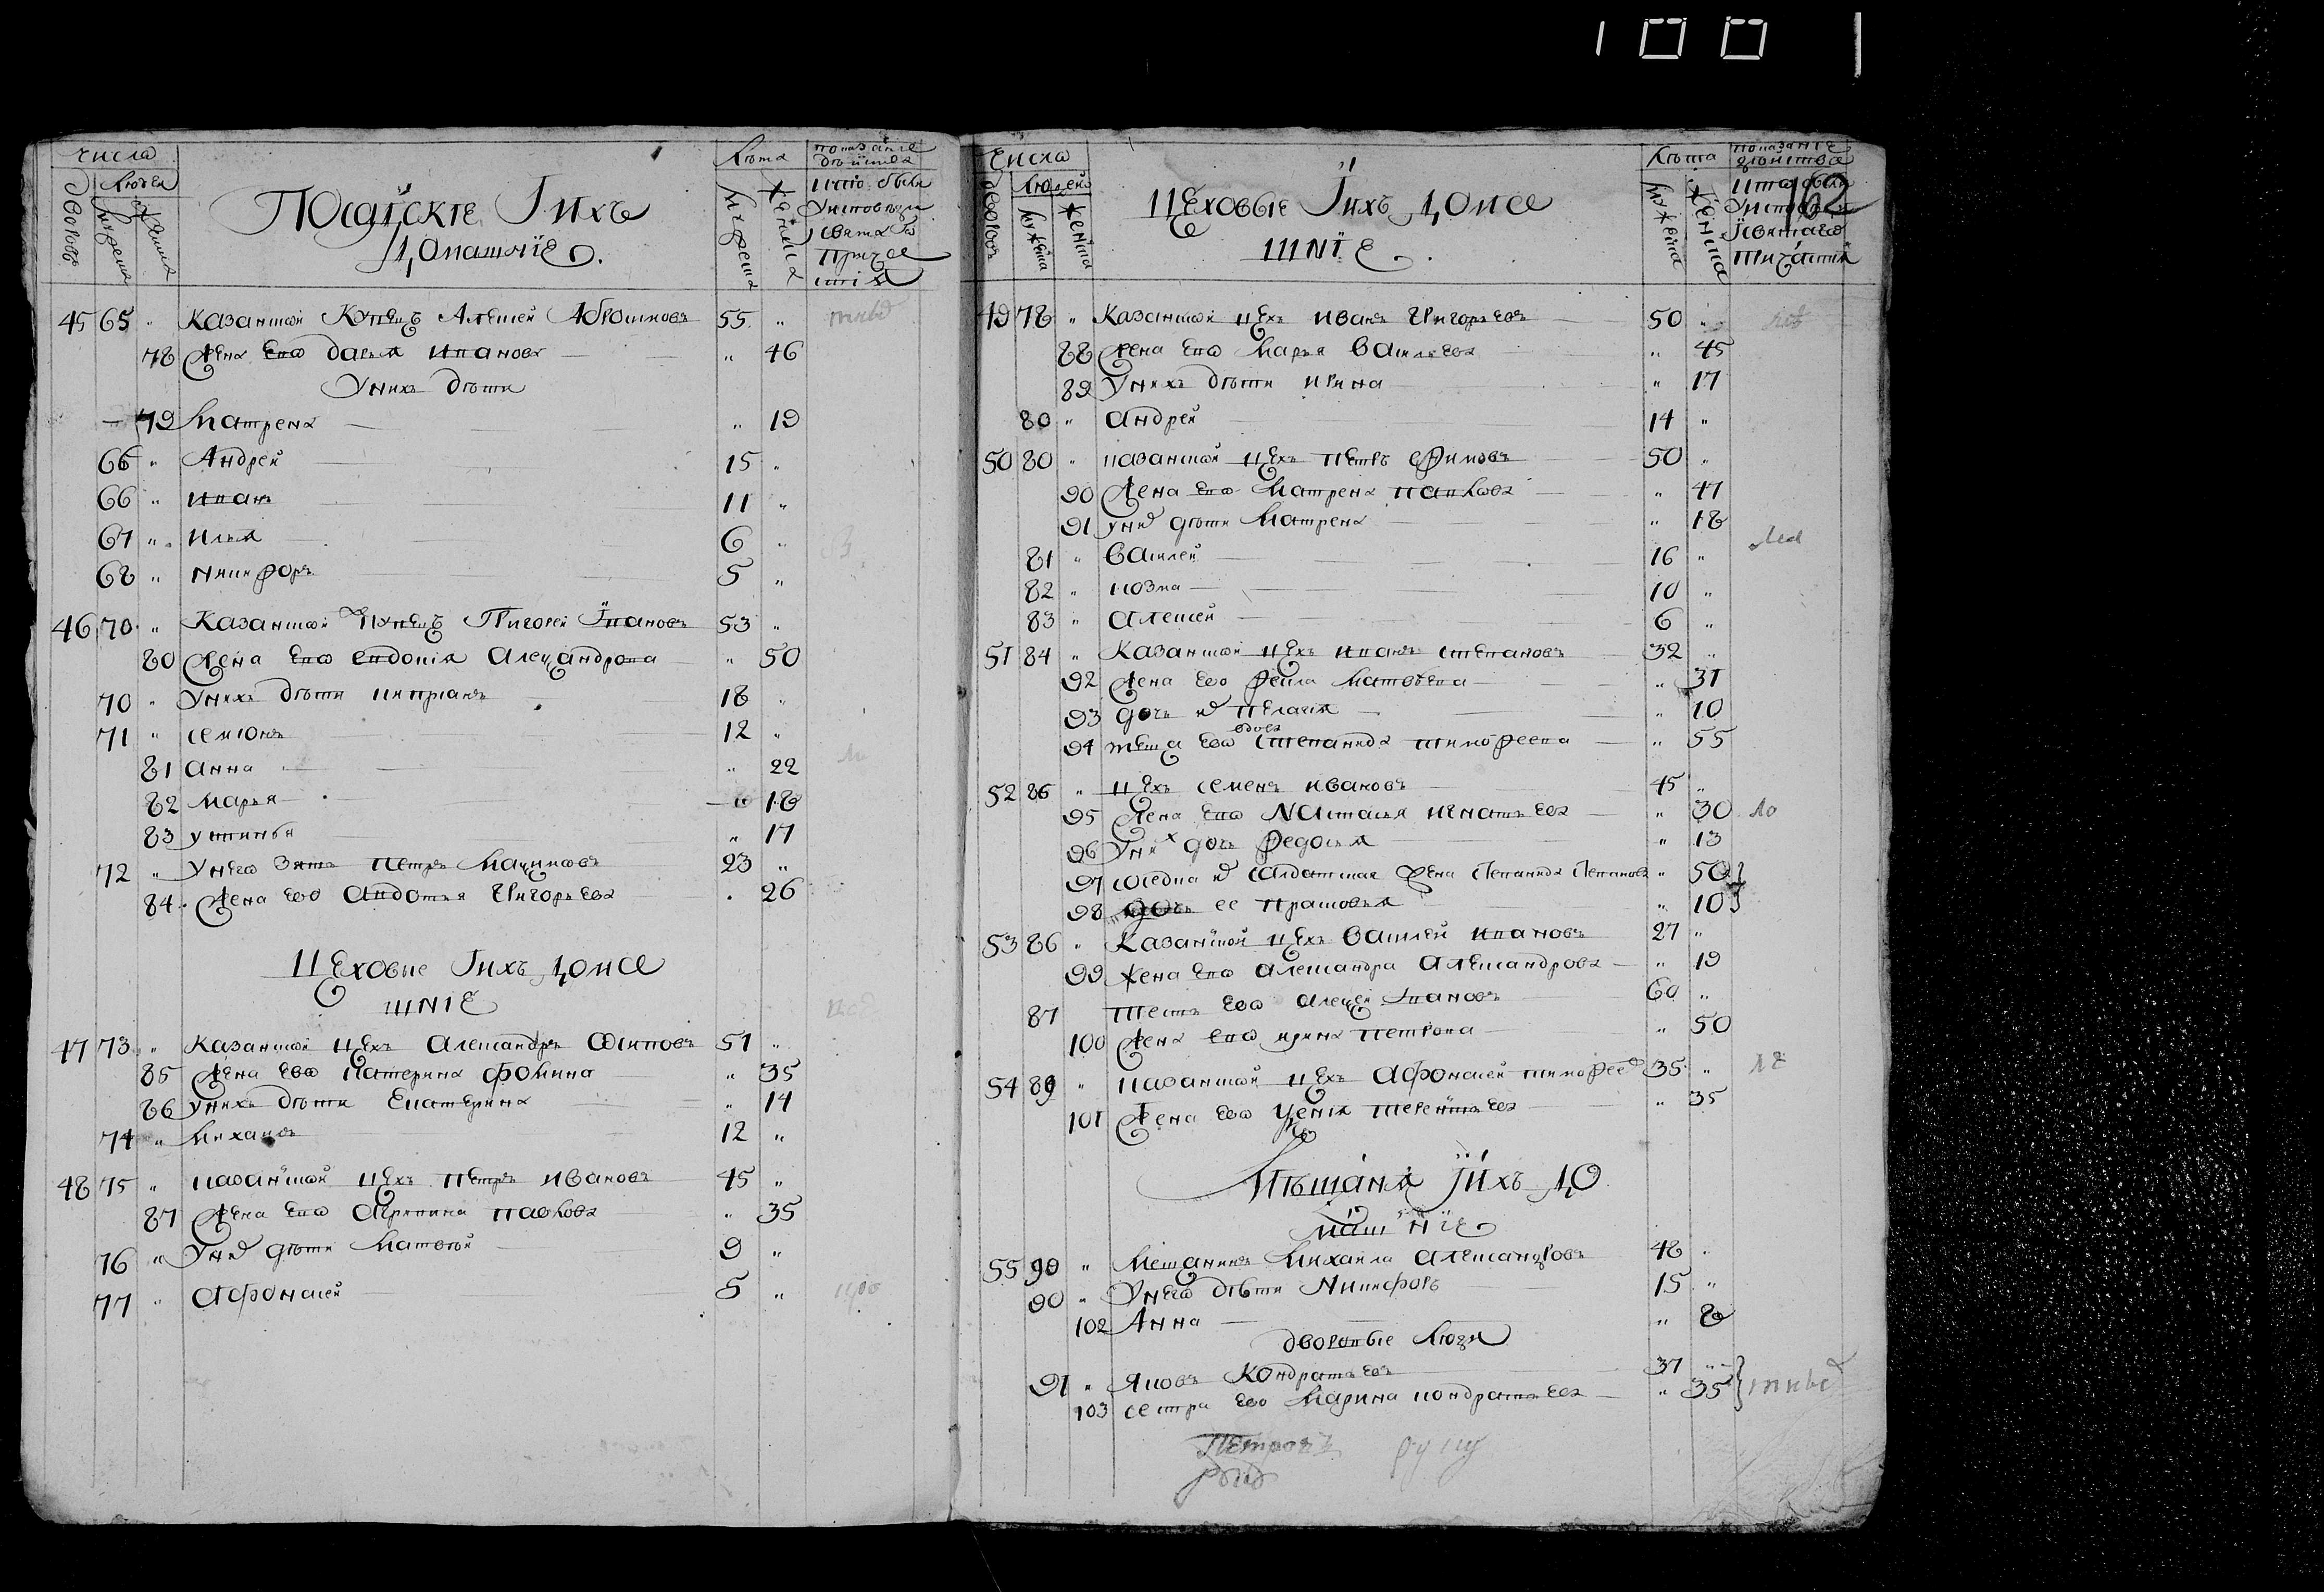 100
числа
людей
дворовъ
мужеска
женска
Посацкїе Їихъ
Домашнїе
Лѣта
мужеска
женска
показанїе
дѣйства
кто былъ
у исповеди
и святаго
причас
тїя
45 65 " Казанской Купецъ Алексей Абросимовъ 55 "
78 Жена Ево Дарья Иванова " 46
У нихъ дѣти
79 Матрена " 19
66 " Андрей 15 "
66 " Иванъ 11 "
67 " Илья 6 "
68 " Никифоръ 5 "
46 70 " Казанской Купецъ Григорей Їванов 53 "
80 Жена Ево Евдокїя Александрова " 50
70 " У нихъ дѣти Киприянъ 18 "
71 " Семионъ 12 "
81 Анна " 22
82 Марья " 18
83 Устинья " 17
72 " У нево Зять Петръ 23 "
84 Жена Ево Авдотья Григорьева 26
Цеховые Їихъ Домa
шнїе
47 73 " Казанской Цехъ Александръ Осиповъ 51 "
85 Жена Ево Катерина Фомина " 35
86 У нихъ дѣти Екатерина " 14
74 " Михаила 12 "
48 75 " Казанской Цехъ Петръ Ивановъ 45 "
87 Жена Ево Агрипина Павлова " 35
76 " У них дѣти Матвѣй 9 "
77 " Афонасей 5 "
162
Числа
Людей
дворовъ
мужеска
женска
Цеховые Їихъ Дома
шнїе
Лѣта
мужеска
женска
показанїе
дѣйства
кто былъ
у исповеди
Їсвятаго
причастїя
49 78 " Казанской Цехъ Иванъ Григорьевъ 50 "
88 Жена Ево Марья Васильева " 45
89 У нихъ дѣти Ирина " 17
80 " Андрей 14 "
50 80 " Казанской Цехъ Петръ Ефимовъ 50 "
90 Жена Ево Матрена Павлова " 47
91 У них дѣти Матрена " 18
81 " Василей 16 "
82 " Козма 10 "
83 " Алексей 6 "
51 84 " Казанской Цехъ Иванъ Степановъ 32 "
92 Жена Ево Фекла Матвѣева " 31
93 дочь их Пелагия " 10
94 теща Ево вдова Степанида Тимофеева " 55
52 86 " Цехъ Семенъ Ивановъ 45 "
95 Жена Ево Настасья Игнатьева " 30
96 У них дочь Федосья " 13
97 соседка их салдатская Жена Степанида Степанова " 50
98 дочь ее Прасковья " 10
53 86 " Казанской Цехъ Василей Ивановъ 27 "
99 Жена Ево Александра Александрова " 19
87 Тесть Ево Алексей Їванов 60 "
100 Жена Ево Ирина Петрова " 50
54 89 " Казанской Цехъ Афонасей Тимофеев 35 "
101 Жена Ево Терентьева " 35
Мѣщаня Їихъ До
машнїе
55 90 " Мещанинъ Михайла Александров 48 "
90 " У нево дѣти Никифоръ 15 "
102 Анна " 8
дворовые Люди
91 " Яковъ Кондратьевъ 37 "
103 сестра Ево Марина Кондратьева " 35
Петровъ руку